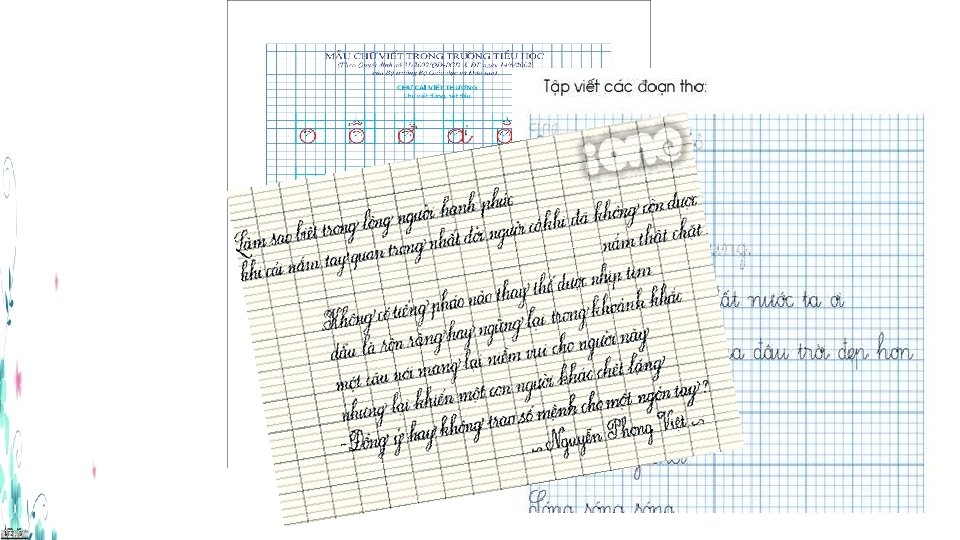 MẪU CHỮ VIẾT TRONG TRƯỜNG TIỂU HỌC
CHỮ CÁI VIẾT THƯỜNG
Tập viết các đoạn thơ:
Làm sao biết trong lòng người hạnh phúc
khi cái nắm tay quan trọng nhất đời người có khi đã không còn được
nắm thật chặt.
Không có tiếng pháo nào thay thế được nhịp tim
dẫu là rộn ràng hay ngừng lại trong khoảnh khắc
một câu nói mang lại niềm vui cho người này
nhưng lại khiến một con người khác chết lặng
-Đồng ý hay không trao số mệnh cho một ngón tay?
~ Nguyễn Phong Việt ~
ất nước ta ơi
đâu trời đẹp hơn
Sóng sóng sóng